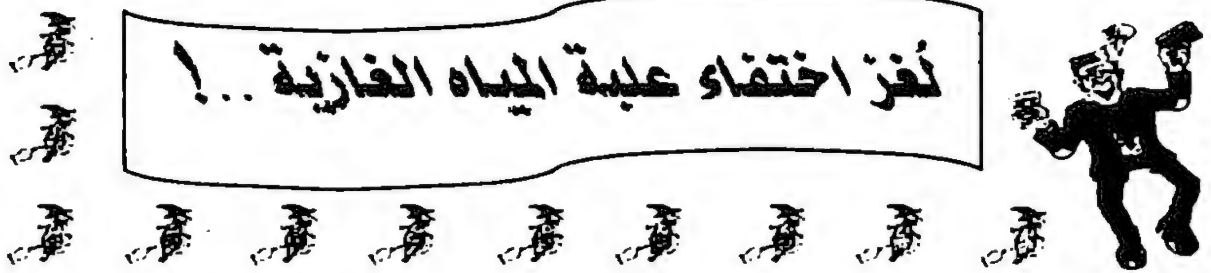 لُغز اختفاء علبة المياه الغازية ..!